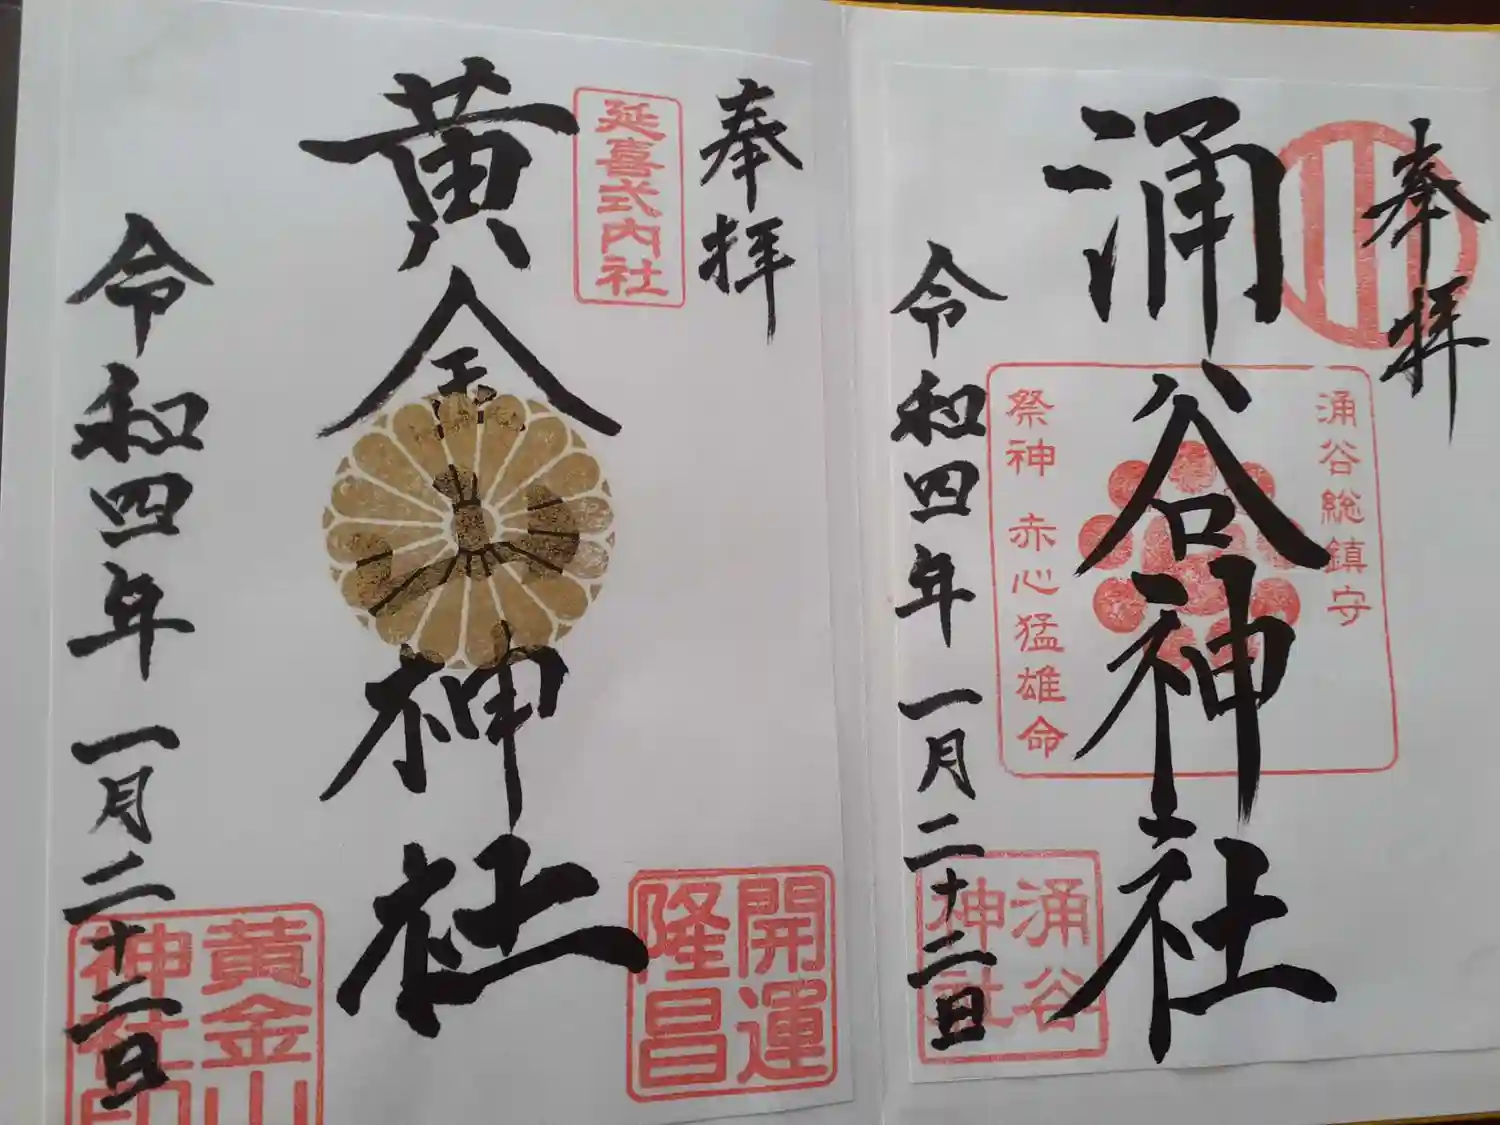 奉拝
涌谷総鎮守
涌谷神社
祭神 赤心猛雄命
涌谷
神社
令和四年 一月二十二日
奉拝
延喜式内社
開運
隆昌
黄金山神社
黄金山
神社印
令和四年 一月二十二日